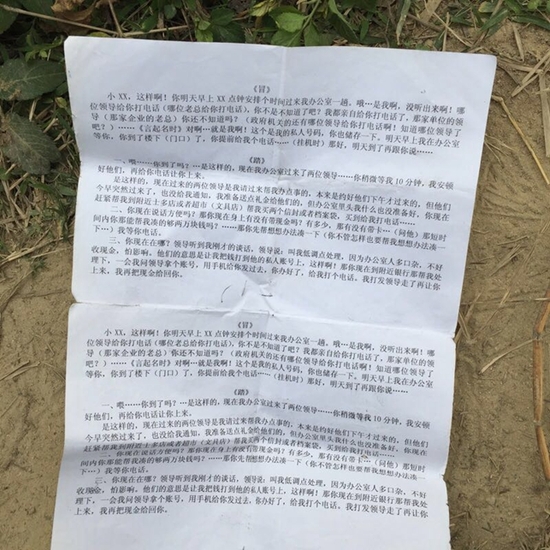 《冒》
小 XX，这样啊！你明天早上 XX 点钟安排个时间过来我办公室一趟。哦…是我啊，没听出来啊！哪
位领导给你打电话（哪位老总给你打电话），你不是不知道了吧？我都亲自给你打电话了，那家单位的领
导（那家企业的老总）你还不知道吗？（政府机关的还有哪位领导给你打电话啊！知道哪位领导了
吧？）……《言起名时》对啊…就是我啊！这个是我的私人号码，你也储存一下。明天早上我在办公室
等你，你到了楼下（门口）了，你提前给我个电话……（挂机时）那好，明天到了再跟你说……
《踏》
一、喂……你到了吗？…是这样的，现在我办公室过来了两位领导……你稍微等我 10 分钟，我安顿
好他们，再给你电话让你上来。
是这样的，现在过来的两位领导是我请过来帮我办点事的，本来是约好他们下午才过来的，但他们
今早突然过来了，也没给我通知，我准备送点礼金给他们的，但办公室里头我什么也没准备好，你现在
赶紧帮我到附近士多店或者超市（文具店）帮我买两个信封或者档案袋，买到给我打电话……
二、你现在说话方便吗？那你现在身上有没有带现金吗？有多少，那有没有带卡…（问他）那短时
间内你那能帮我凑的够两万块钱吗？……那你先帮想想办法凑一下（你不管怎样也要帮我想想办法凑一
下）我等你电话。
三、你现在在哪？领导听到我刚才的谈话，领导说：叫我低调点处理，因为办公室人多口杂，不好
收现金，怕影响。他们的意思是让我把钱打到他的私人账号上，这样吧！那你现在到附近银行那帮我处
理下，一会我问领导拿个账号，用手机给你发过去，你办好了，给我打个电话。我打发领导走了再让你
上来，我再把现金给回你。
《冒》
小 XX，这样啊！你明天早上 XX 点钟安排个时间过来我办公室一趟。哦…是我啊，没听出来啊！哪
位领导给你打电话（哪位老总给你打电话），你不是不知道了吧？我都亲自给你打电话了，那家单位的领
导（那家企业的老总）你还不知道吗？（政府机关的还有哪位领导给你打电话啊！知道哪位领导了
吧？）……《言起名时》对啊…就是我啊！这个是我的私人号码，你也储存一下。明天早上我在办公室
等你，你到了楼下（门口）了，你提前给我个电话……（挂机时）那好，明天到了再跟你说……
《踏》
一、喂……你到了吗？…是这样的，现在我办公室过来了两位领导……你稍微等我 10 分钟，我安顿
好他们，再给你电话让你上来。
是这样的，现在过来的两位领导是我请过来帮我办点事的，本来是约好他们下午才过来的，但他们
今早突然过来了，也没给我通知，我准备送点礼金给他们的，但办公室里头我什么也没准备好，你现在
赶紧帮我到附近士多店或者超市（文具店）帮我买两个信封或者档案袋，买到给我打电话……
二、你现在说话方便吗？那你现在身上有没有带现金吗？有多少，那有没有带卡…（问他）那短时
间内你那能帮我凑的够两万块钱吗？……那你先帮想想办法凑一下（你不管怎样也要帮我想想办法凑一
下）我等你电话。
三、你现在在哪？领导听到我刚才的谈话，领导说：叫我低调点处理，因为办公室人多口杂，不好
收现金，怕影响。他们的意思是让我把钱打到他的私人账号上，这样吧！那你现在到附近银行那帮我处
理下，一会我问领导拿个账号，用手机给你发过去，你办好了，给我打个电话。我打发领导走了再让你
上来，我再把现金给回你。